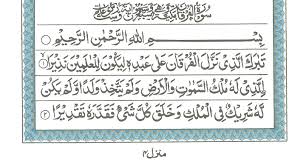 سُوْرَةُ الْفُرْقَانِ
بِسْمِ اللهِ الرَّحْمٰنِ الرَّحِيْمِ
تَبٰرَكَ الَّذِيْ نَزَّلَ الْفُرْقَانَ عَلٰى عَبْدِهٖ لِيَكُوْنَ لِلْعٰلَمِيْنَ نَذِيْرًا ۱
الَّذِيْ لَهٗ مُلْكُ السَّمٰوٰتِ وَالْاَرْضِ وَلَمْ يَتَّخِذْ وَلَدًا وَّلَمْ يَكُنْ
لَّهٗ شَرِيْكٌ فِي الْمُلْكِ وَخَلَقَ كُلَّ شَيْءٍ فَقَدَّرَهٗ تَقْدِيْرًا ۲
منزل ۴